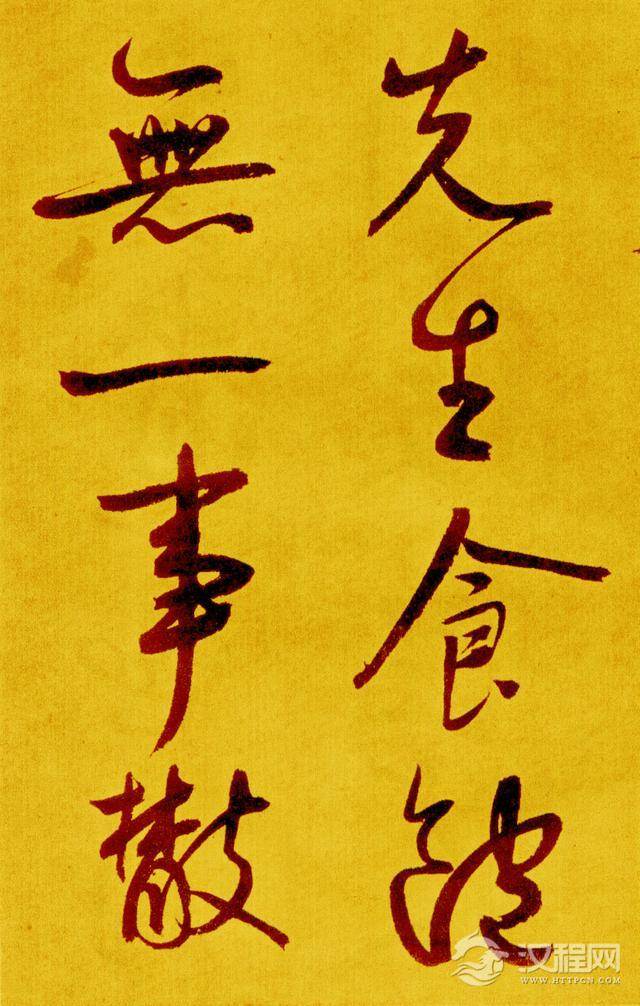 先生食飽
無一事散
汉程网
WWW.HTTPCN.COM